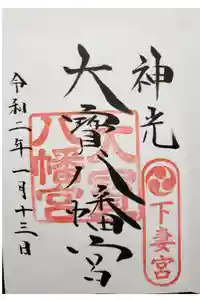 神光
大寳八幡宮
令和二年一月十三日
大寳
八幡宮
下妻宮